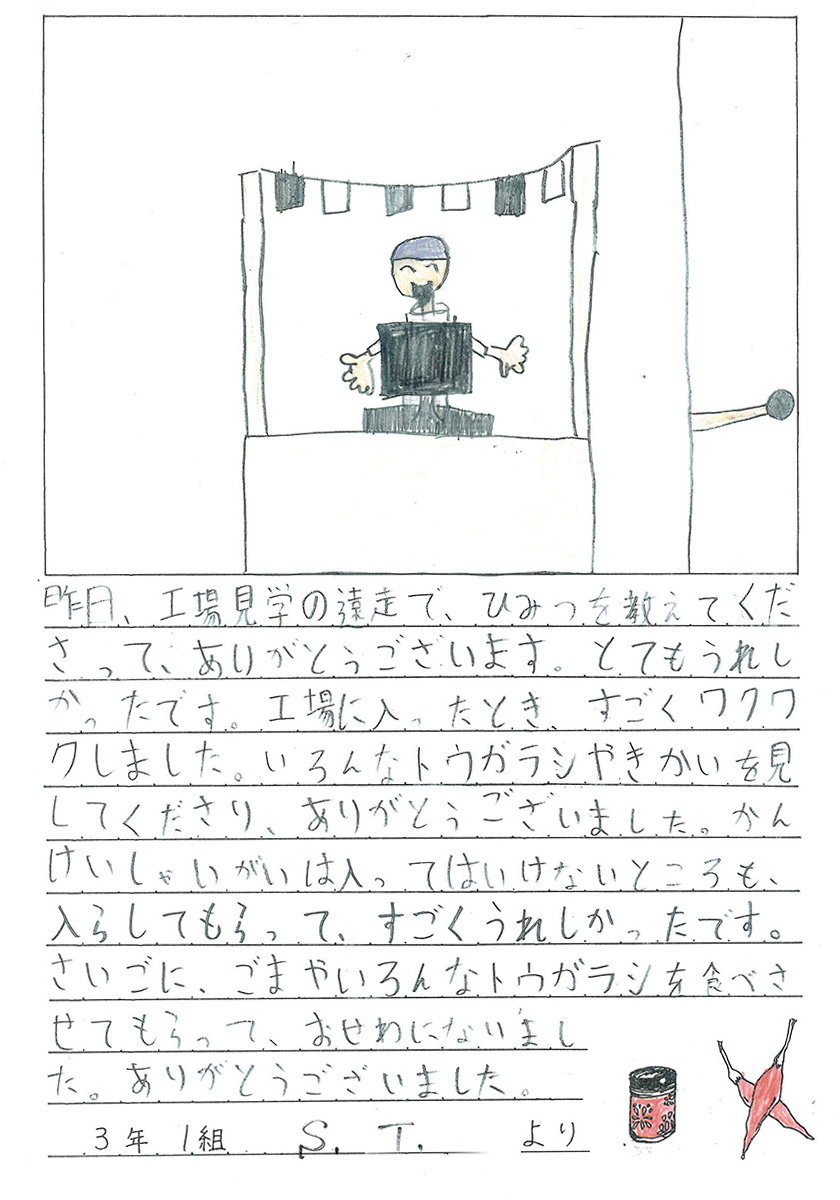 昨日、工場見学の遠走で、ひみつを教えてくだ
さって、ありがとうございます。とてもうれし
かったです。工場に入ったとき、すごくワクワ
クしました。いろんなトウガラシやきかいを見
してくださり、ありがとうございました。かん
けいしゃいがいは入ってはいけないところも、
入らしてもらって、すごくうれしかったです。
さいごに、ごまやいろんなトウガラシを食べさ
せてもらって、おせわにないまし
た。ありがとうございました。
3年1組 S. T. より